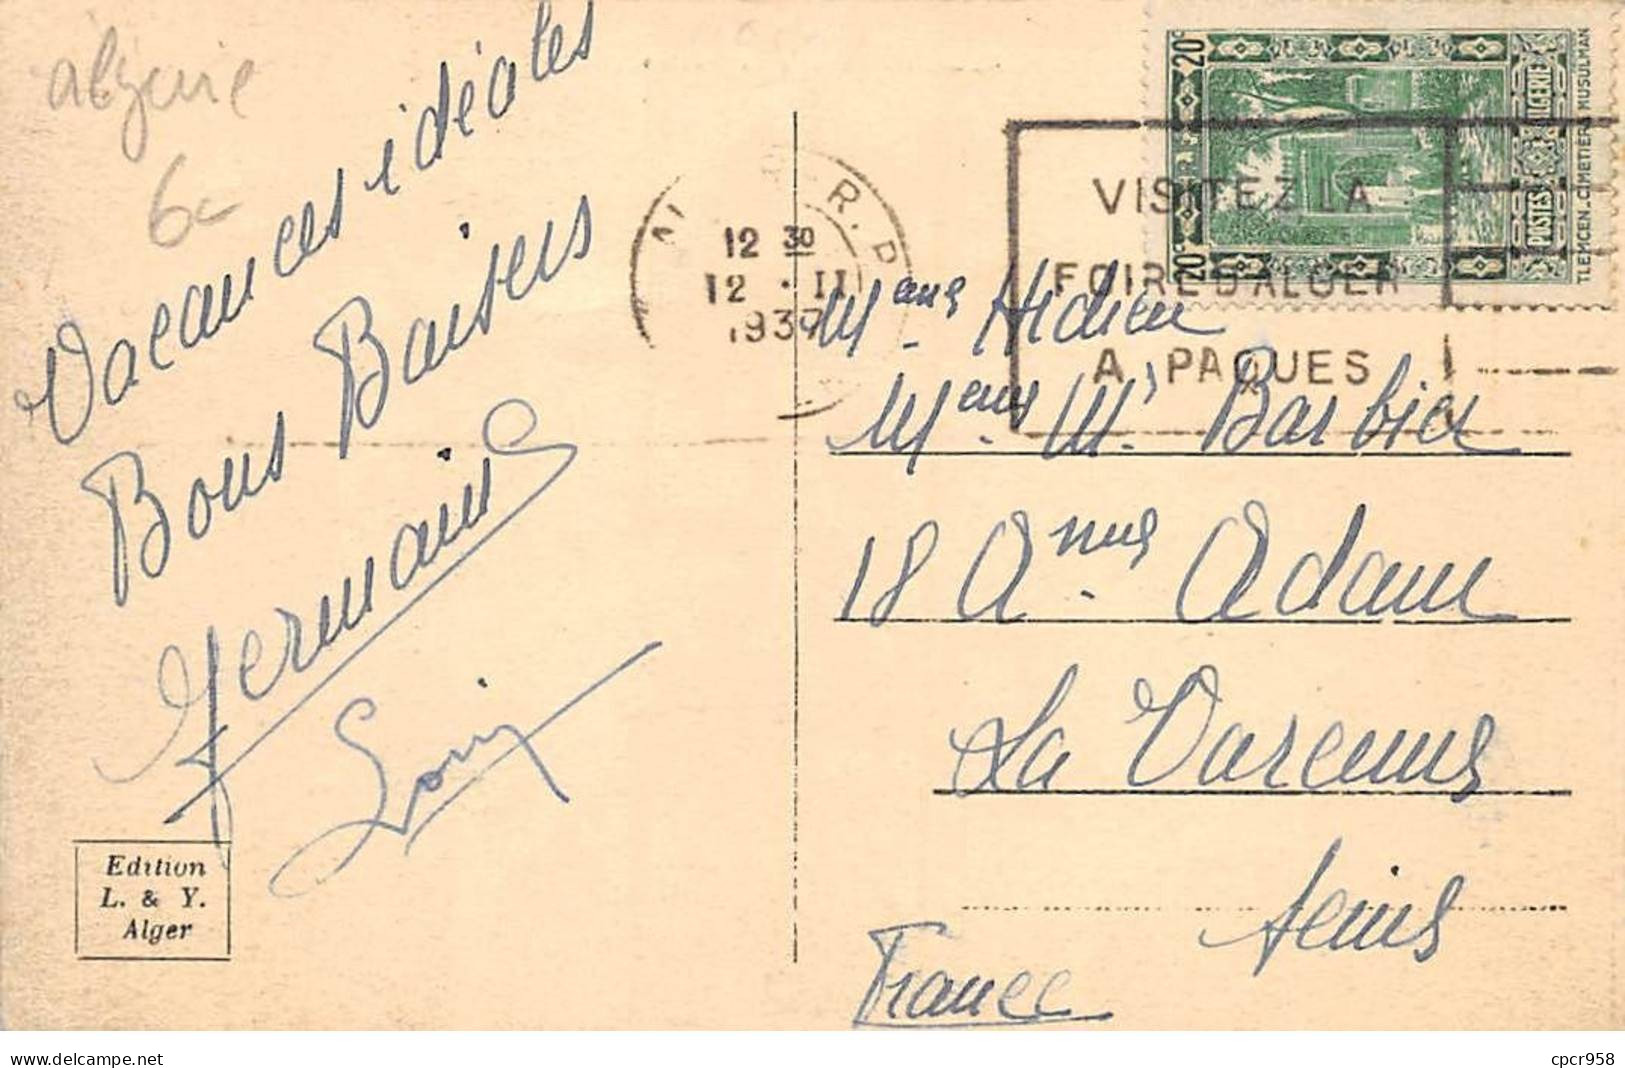 algerie
6€
Vacances idéales
Bons Baisers
Germaine
Louis
Edition
L. & Y.
Alger
ALGER R.P
12 30
12 • II
1937
VISITEZ LA
FOIRE D'ALGER
A PAQUES
20c
20c
POSTES ALGERIE
TLEMCEN_CIMETIERE MUSULMAN
Mame Hidieu
Meme Mr Barbier
18 Anue Adam
La Varenne
Seine
France
cpcr958